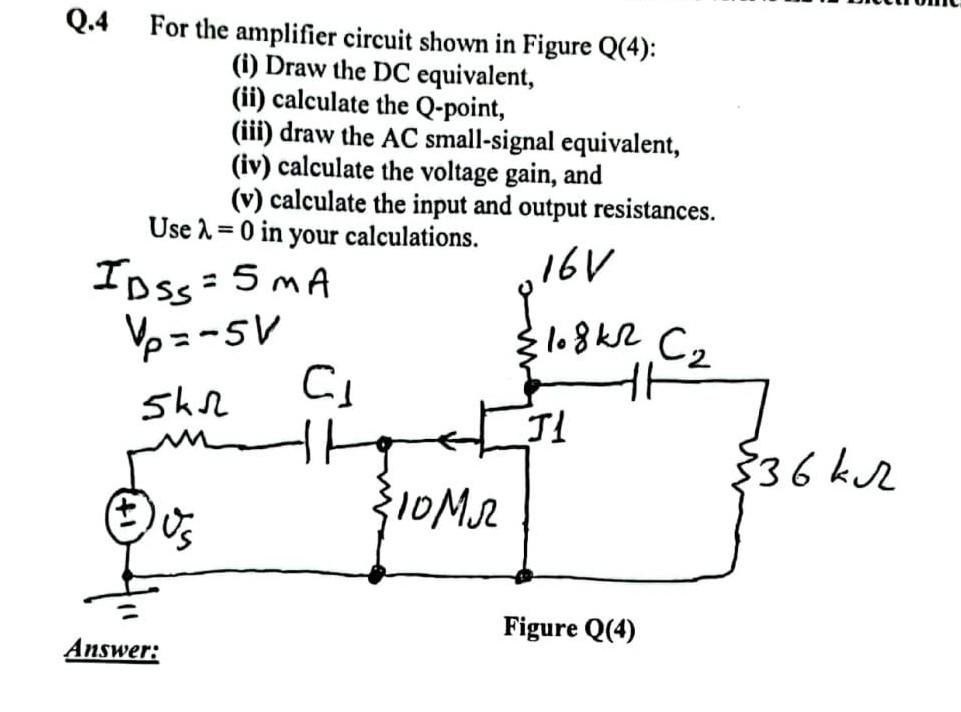 Q.4 For the amplifier circuit shown in Figure Q(4):
(i) Draw the DC equivalent,
(ii) calculate the Q-point,
(iii) draw the AC small-signal equivalent,
(iv) calculate the voltage gain, and
(v) calculate the input and output resistances.
Use λ = 0 in your calculations.
IDSS = 5 mA
16V
Vp = -5V
1.8kΩ C2
5kΩ C1
J1
36 kΩ
10MΩ
+
-
vs
Figure Q(4)
Answer: